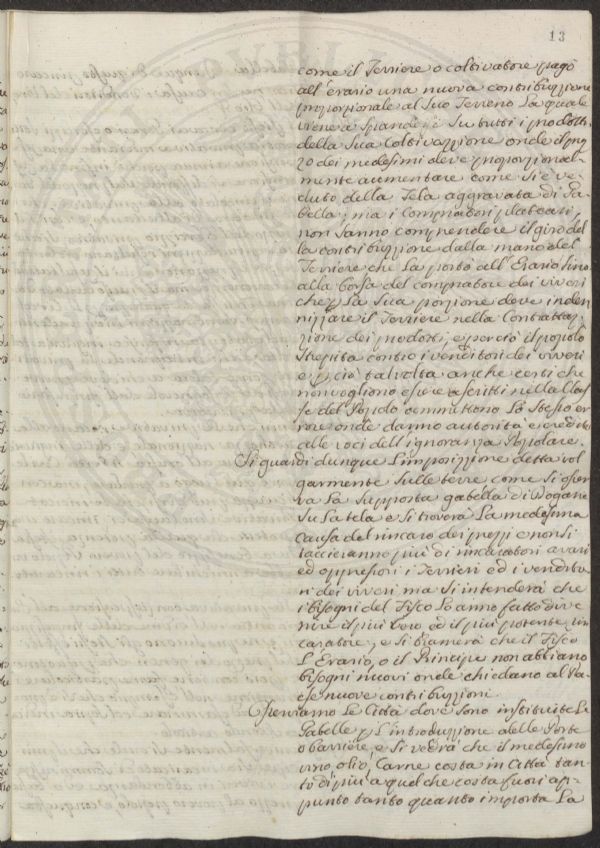 13
come il Terriere o coltivatore pagò
all'Erario una nuova contribuzzione
proporzionale al suo Terreno La quale
viene a spandersi su tutti i prodotti
della sua coltivazzione onde il prez
zo dei medesimi deve proporzional-
mente aumentare come si è ve-
duto della Tela aggravata di Ga-
bella; ma i Compratori
non sanno comprendere il giro del
la contribuzzione dalla mano del
Terriere che La portò all'Erario sino
alla borsa del compratore dei viveri
che p La sua porzione deve inden
nizzare il Terriere nella Contratta-
zzione dei prodotti, e perciò il popolo
strepita contro i venditori dei viveri
e p ciò talvolta anche certi che
non vogliono essere ascritti nella Clas
se del Popolo ammettono Lo stesso er
rore onde danno autorità e credito
alle voci dell'ignoranza Popolare.
Si guardi dunque L'imposizzione detta vol
garmente sulle terre come si osser
va La supposta gabella di Dogana
su La tela e si troverà La medesima
causa del rincaro dei prezzi e non si
taccieranno più di rincaratori avari
ed oppressori i Terrieri ed i vendito
ri dei viveri ma si intenderà che
i bisogni del Fisco Lo anno fatto dive
nire il più vero ed il più potente in
caratore, e si bramerà che il Fisco
L'Erario, o il Principe non abbiano
bisogni nuovi onde chiedano al Pa
ese nuove contribuzzioni.
Le Città dove sono instituite Le
Gabelle p L'introduzzione alle Porte
o barriere, e si vedrà che il medesimo
vino olio, Carne costa in Città tan
to di più a quel che costa fuori ap-
punto tanto quanto importa La